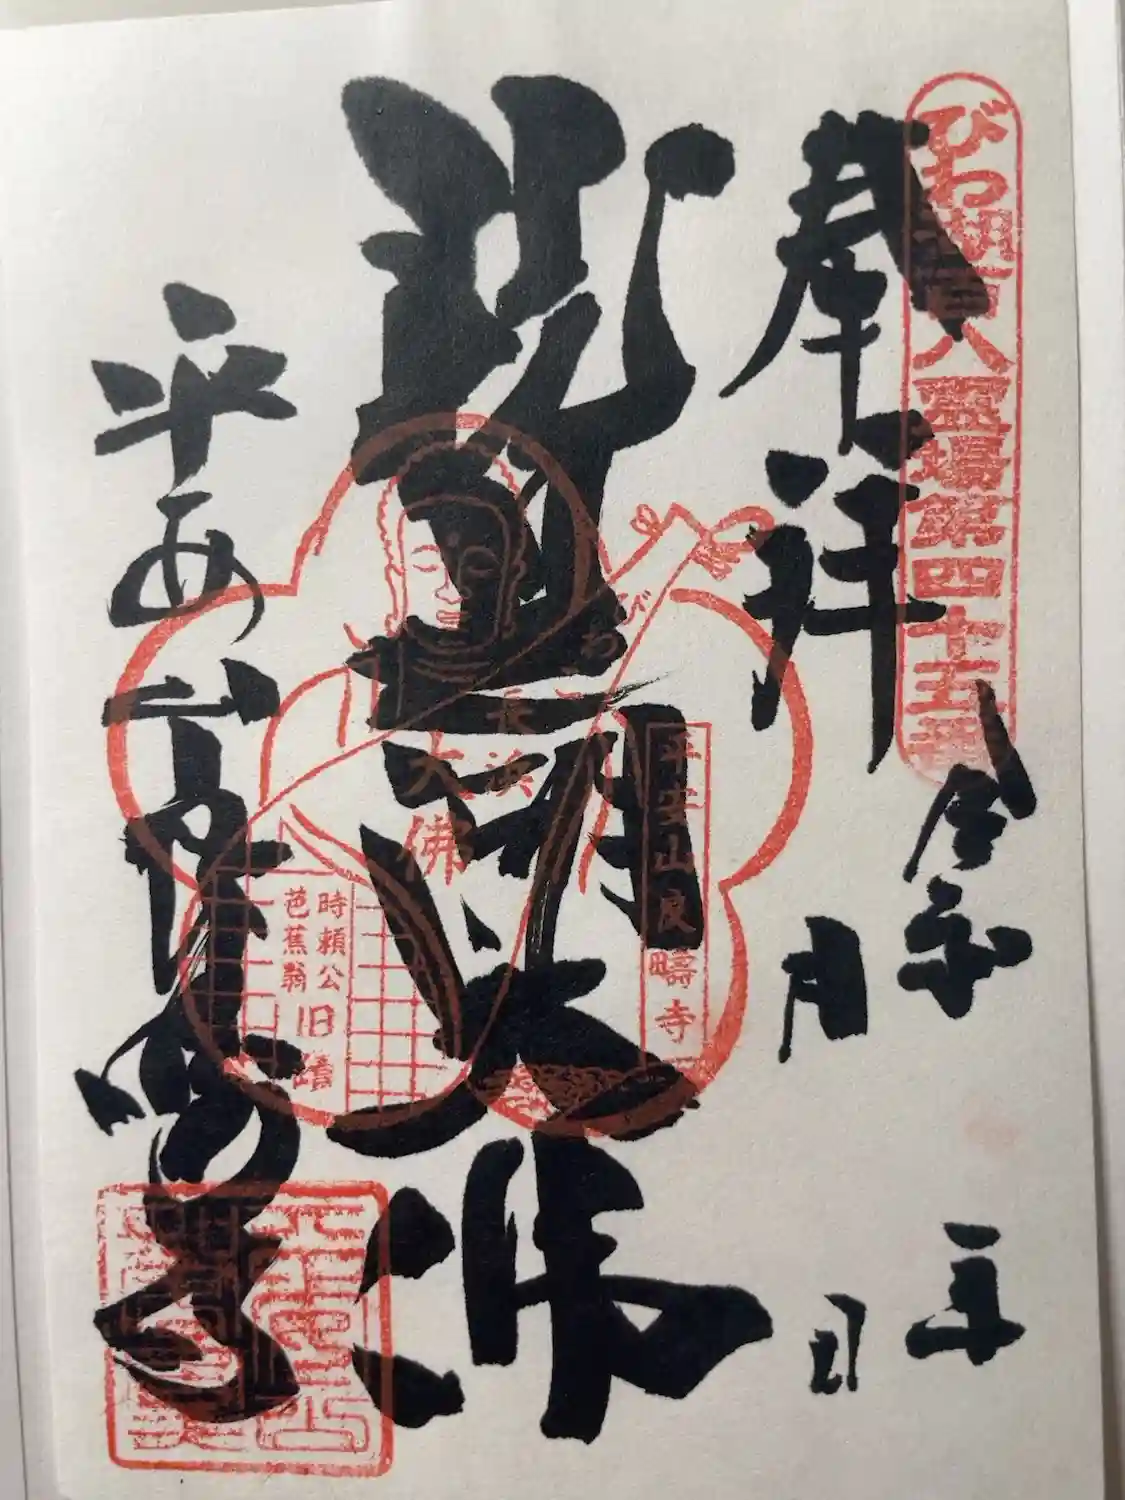 びわ湖百八霊場第四十五番
奉拝
令和 年
月 日
琵琶湖大佛
びわこ
長浜
大佛
平安山良疇寺
時頼公
芭蕉翁
旧蹟
平安山良疇寺